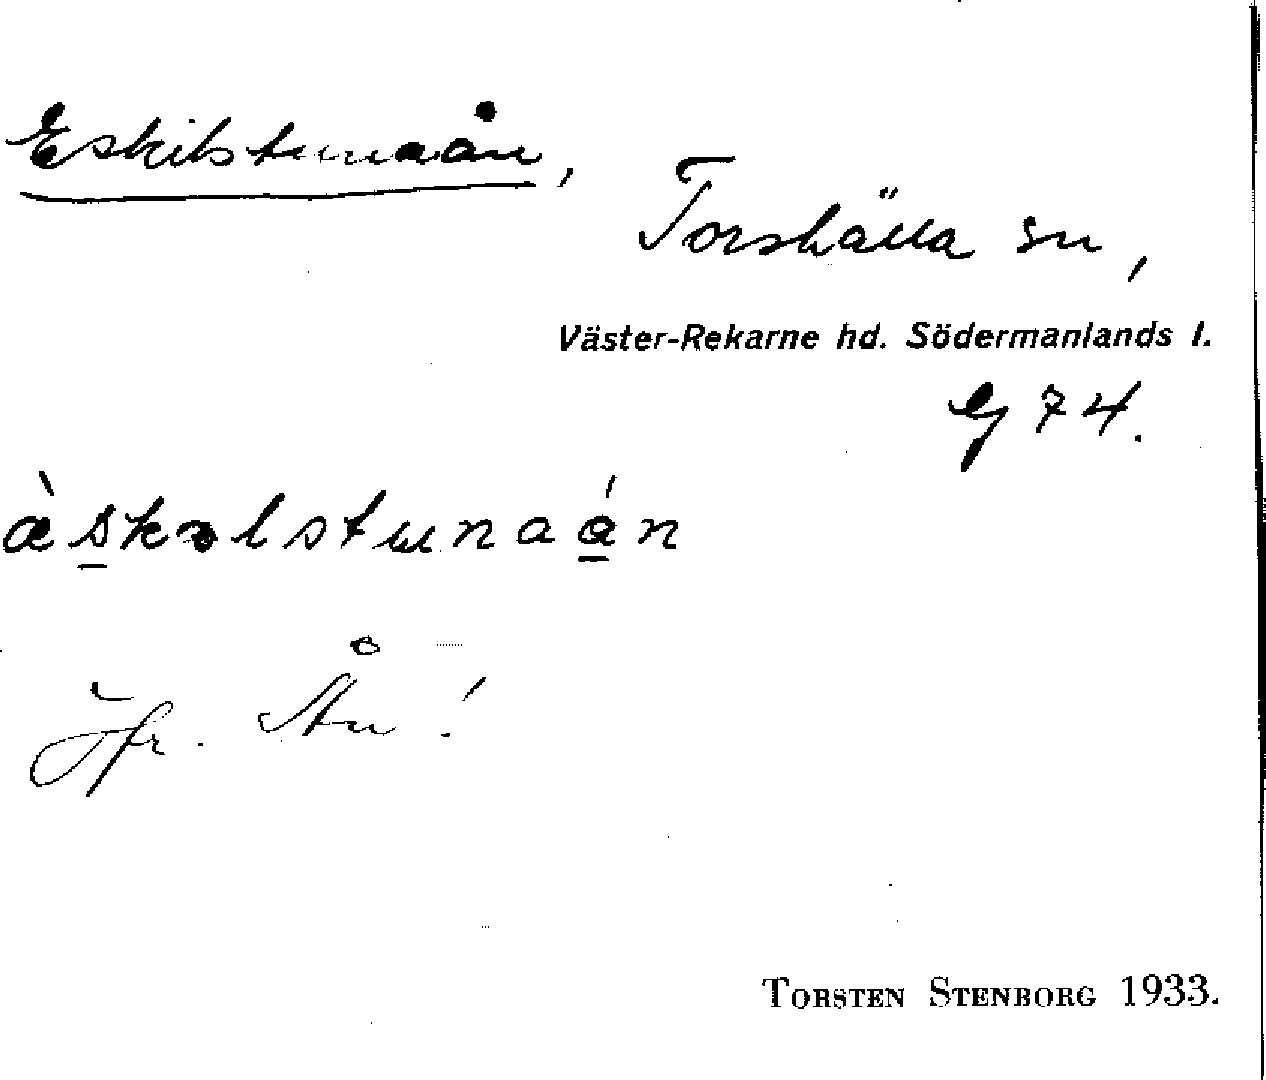 Eskilstunaån,
Torshälla sn,
Väster-Rekarne hd. Södermanlands l.
G 74.
æ̀s̲kəlstunaá̲n
Jfr. Ån!
TORSTEN STENBORG 1933.